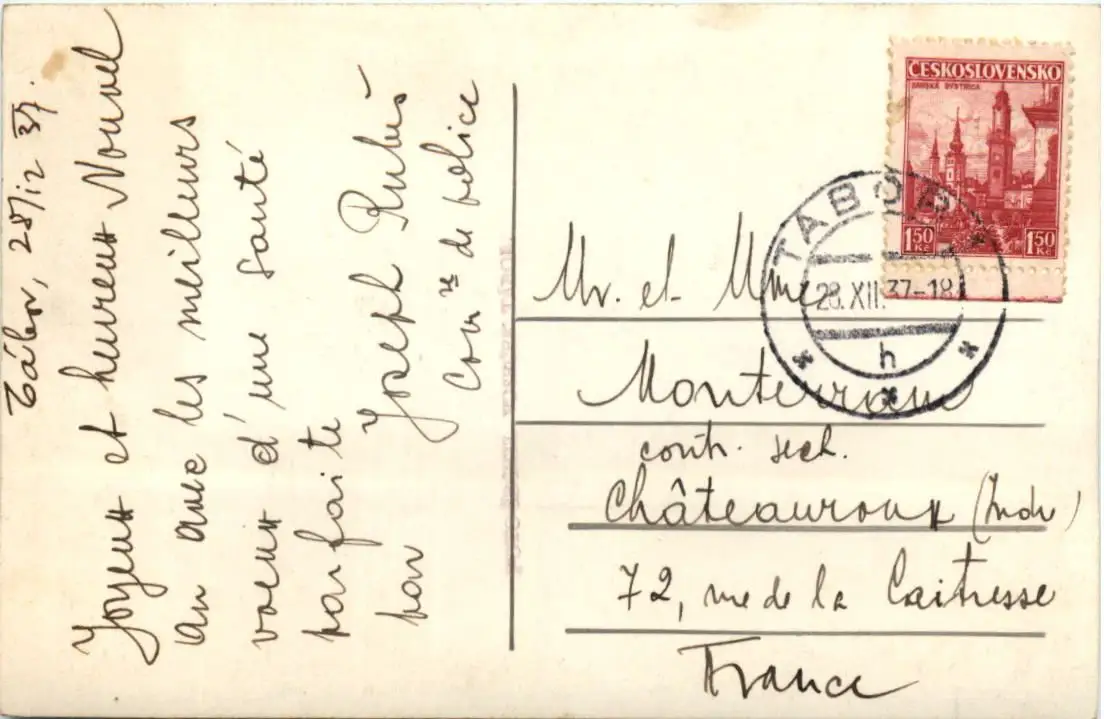 Tábor, 28/12 37.
Joyeux et heureux Nouvel
An avec les meilleurs
voeux d'une santé
parfaite
par Joseph Rubeš
Com re de police
ČESKOSLOVENSKO
BANSKÁ BYSTRICA
1.50 Kč 1.50 Kč
TÁBOR
28.XII.37-18
h
Mr. et Mme
contr. tech.
Châteauroux (Indre)
72, rue de la
France